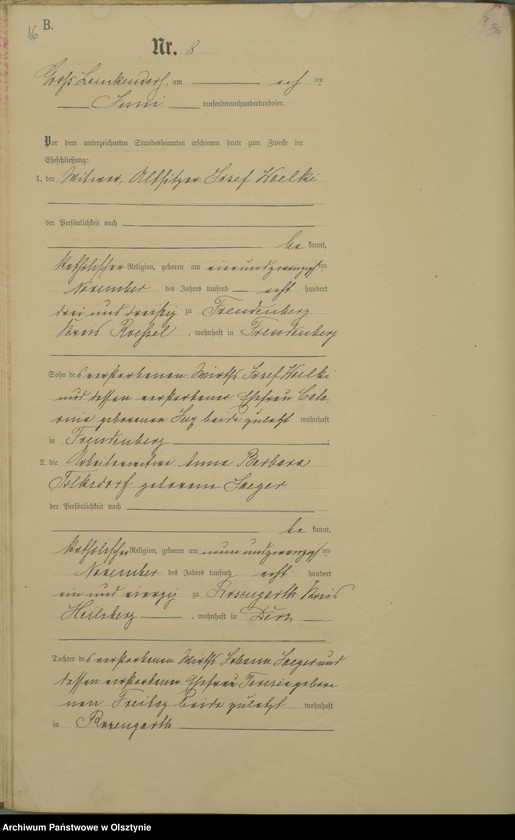 16 B.
Nr. 8
Groß Lemkendorf, am acht ten
Juni tausendneunhundertundvier.
Vor dem unterzeichneten Standesbeamten erschienen heute zum Zwecke der
Eheschließung:
1. der Witwer, Altsitzer Josef Woelki
der Persönlichkeit nach
be kannt,
katholischer Religion, geboren am einundzwanzigsten
November des Jahres tausend acht hundert
drei und dreißig zu Freudenberg
Kreis Roessel, wohnhaft in Freudenberg
Sohn des verstorbenen Wirths Josef Woelki
und dessen verstorbener Ehefrau Catha
rina geborenen beide zuletzt wohnhaft
in Freudenberg.
2. die Arbeiterwitwe Anna Barbara
Volksdorf geborene Jaeger
der Persönlichkeit nach
be kannt,
katholischer Religion, geboren am neunundzwanzigsten
November des Jahres tausend acht hundert
ein und vierzig zu Rosengarth Kreis
Heilsberg, wohnhaft in Derz
Tochter des verstorbenen Wirths Johann Jaeger und
dessen verstorbener Ehefrau geborenen
nen Freitag beide zuletzt wohnhaft
in Rosengarth
Archiwum Państwowe w Olsztynie